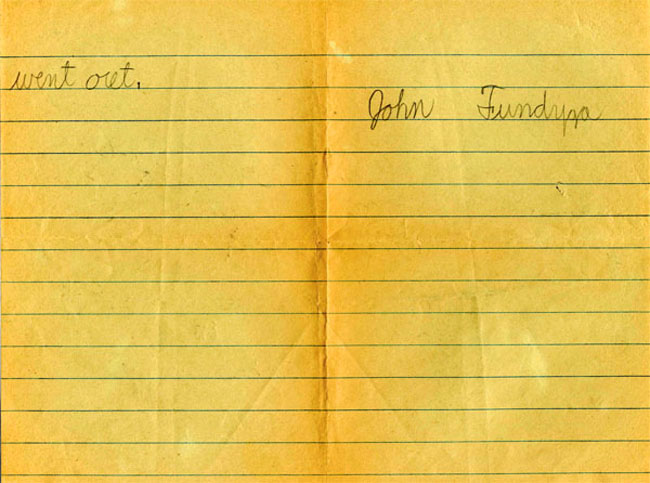 went out.
John Fundyga